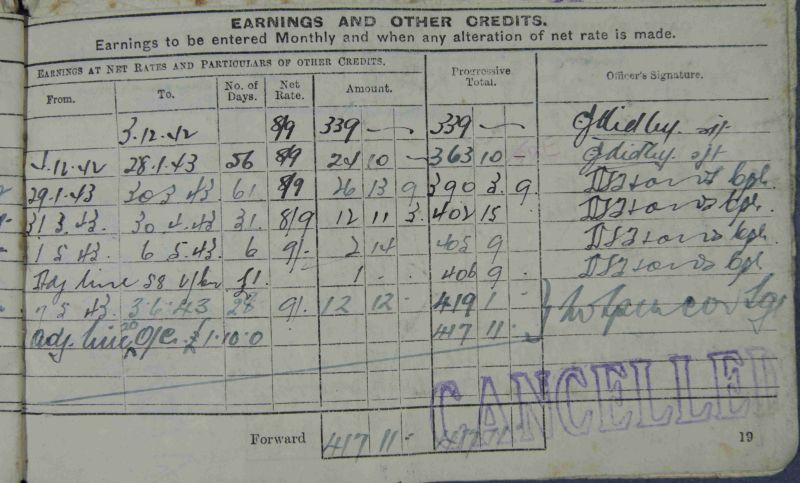 EARNINGS AND OTHER CREDITS.
Earnings to be entered Monthly and when any alteration of net rate is made.
EARNINGS AT NET RATES AND PARTICULARS OF OTHER CREDITS.
Progressive Total.
Officer's Signature.
From. To. No. of Days. Net Rate. Amount.
3.12.42 8/9 339 — — 339 — —
4.12.42 28.1.43 56 8/9 24 10 — 363 10 —
29.1.43 30 3 43 61 8/9 26 13 9 390 3 9
31 3 43 30 4 43 31 8/9 12 11 3 402 15
1 5 43 6 5 43 6 9/- 2 14 405 9 Cpl
Adj line 58 £1. 1 - 406 9 Cpl
7 5 43 3.6.43 28 9/- 12 12 - 419 1 Sgt
adj. line 20 O/C £1.10.0 417 11
CANCELLED
Forward 417 11 - 417 11 -
19